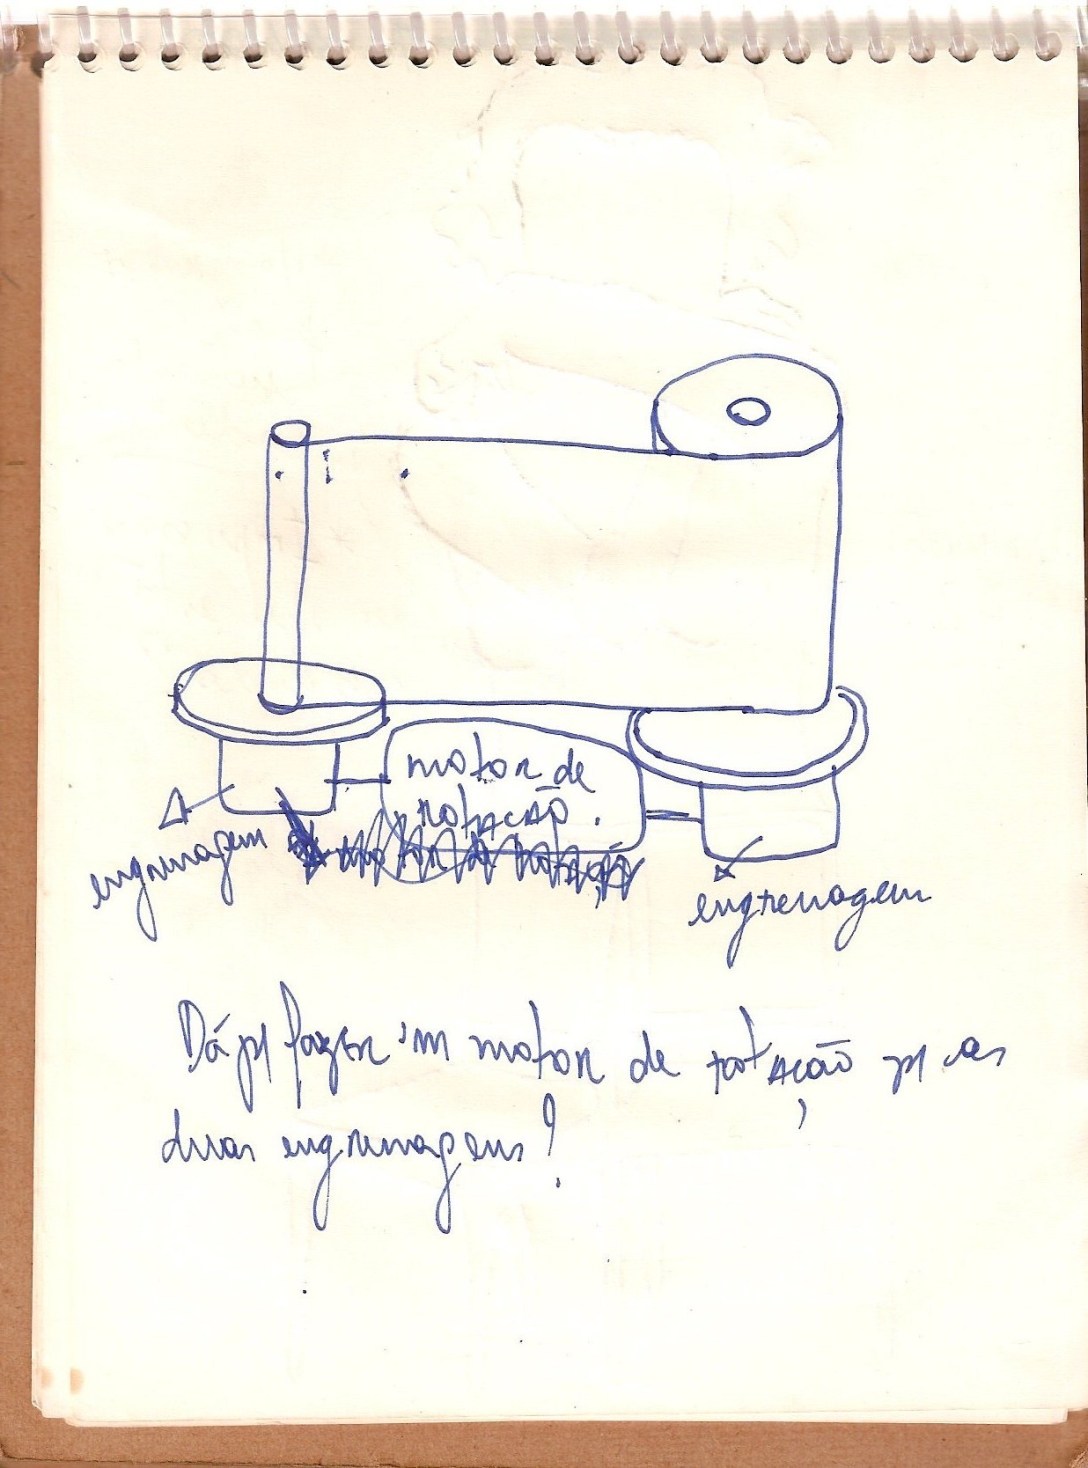 motor de
rotação.
engrenagem
motor de rotação
engrenagem
Dá p/ fazer 'm motor de rotação p/ as
duas engrenagens?